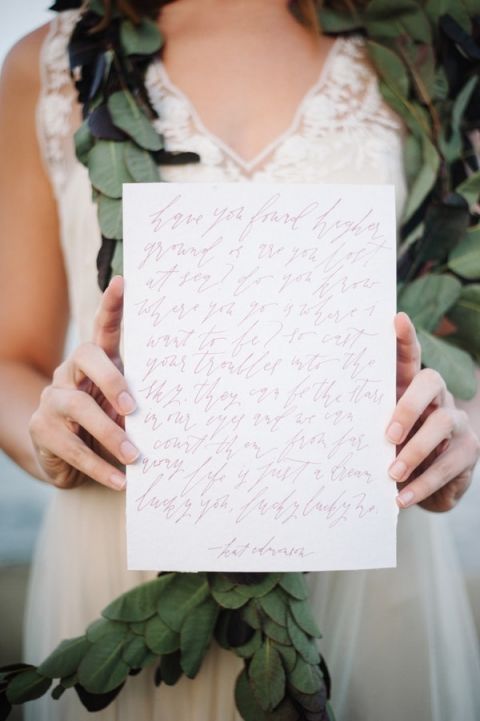 have you found higher
ground or are you lost
at sea? do you know
where you go is where i
want to be? so cast
your troubles into the
sky. they can be the stars
in our eyes and we can
count them from far
away life is just a dream
lucky you, lucky lucky me.
-kat edmonson